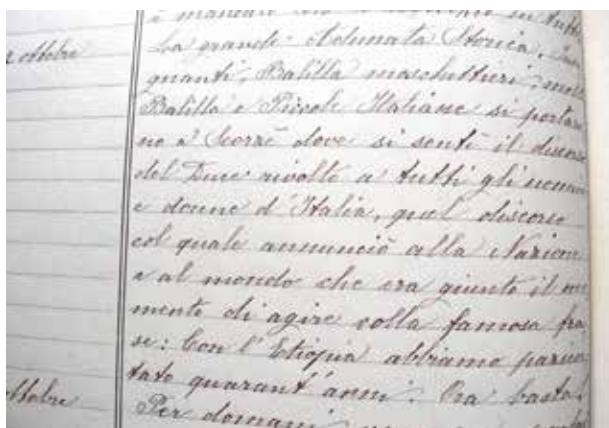 e mandare
ottobre
La grande Adunata Storica.
quanti, Balilla moschettieri,
Balilla e Piccole Italiane si portaro
no a Scorzè dove si sentì il discorso
del Duce rivolto a tutti gli uomini
e donne d'Italia, quel discorso
col quale annunciò alla Nazione
e al mondo che era giunto il mo
mento di agire colla famosa fra
se: Con l'Etiopia abbiamo pazien
tato quarant'anni. Ora basta!
ottobre
Per domani